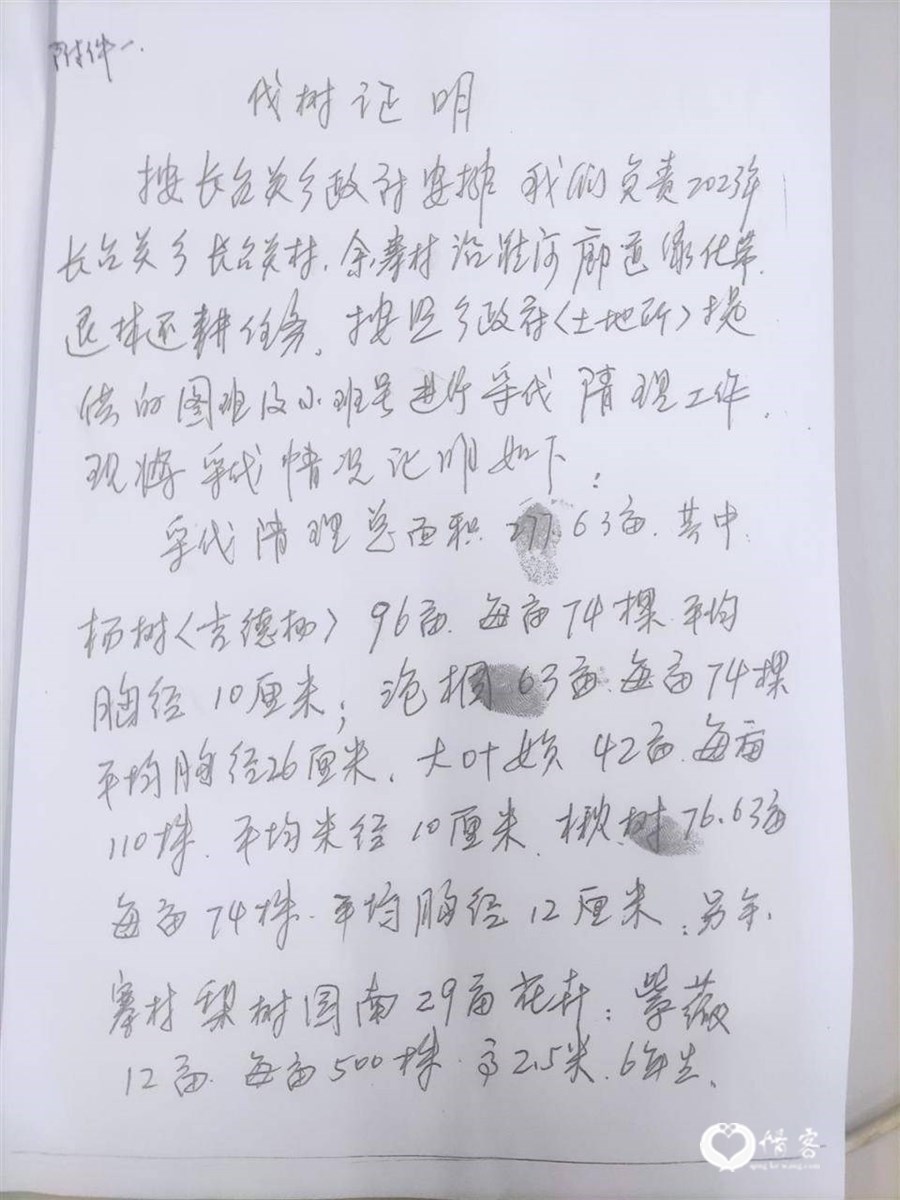 附件一.
伐树证明
按长台关乡政府安排 我们负责2023年
长台关乡长台关村、余寨村沿淮河廊道绿化带
退林还耕任务、按照乡政府〈土地所〉提
供的图班及小班号进行采伐清理工作.
现将采伐情况证明如下:
采伐清理总面积277.63亩.其中.
杨树〈吉德杨〉96亩.每亩74棵.平均
胸径10厘米;泡桐63亩.每亩74棵
平均胸径26厘米.大叶女贞42亩.每亩
110株.平均米径10厘米.楸树76.63亩
每亩74株.平均胸径12厘米;另余
寨村梨树园南29亩花卉:紫薇
12亩.每亩500株.高2.5米.6年生、
情客
qing ke wang.com